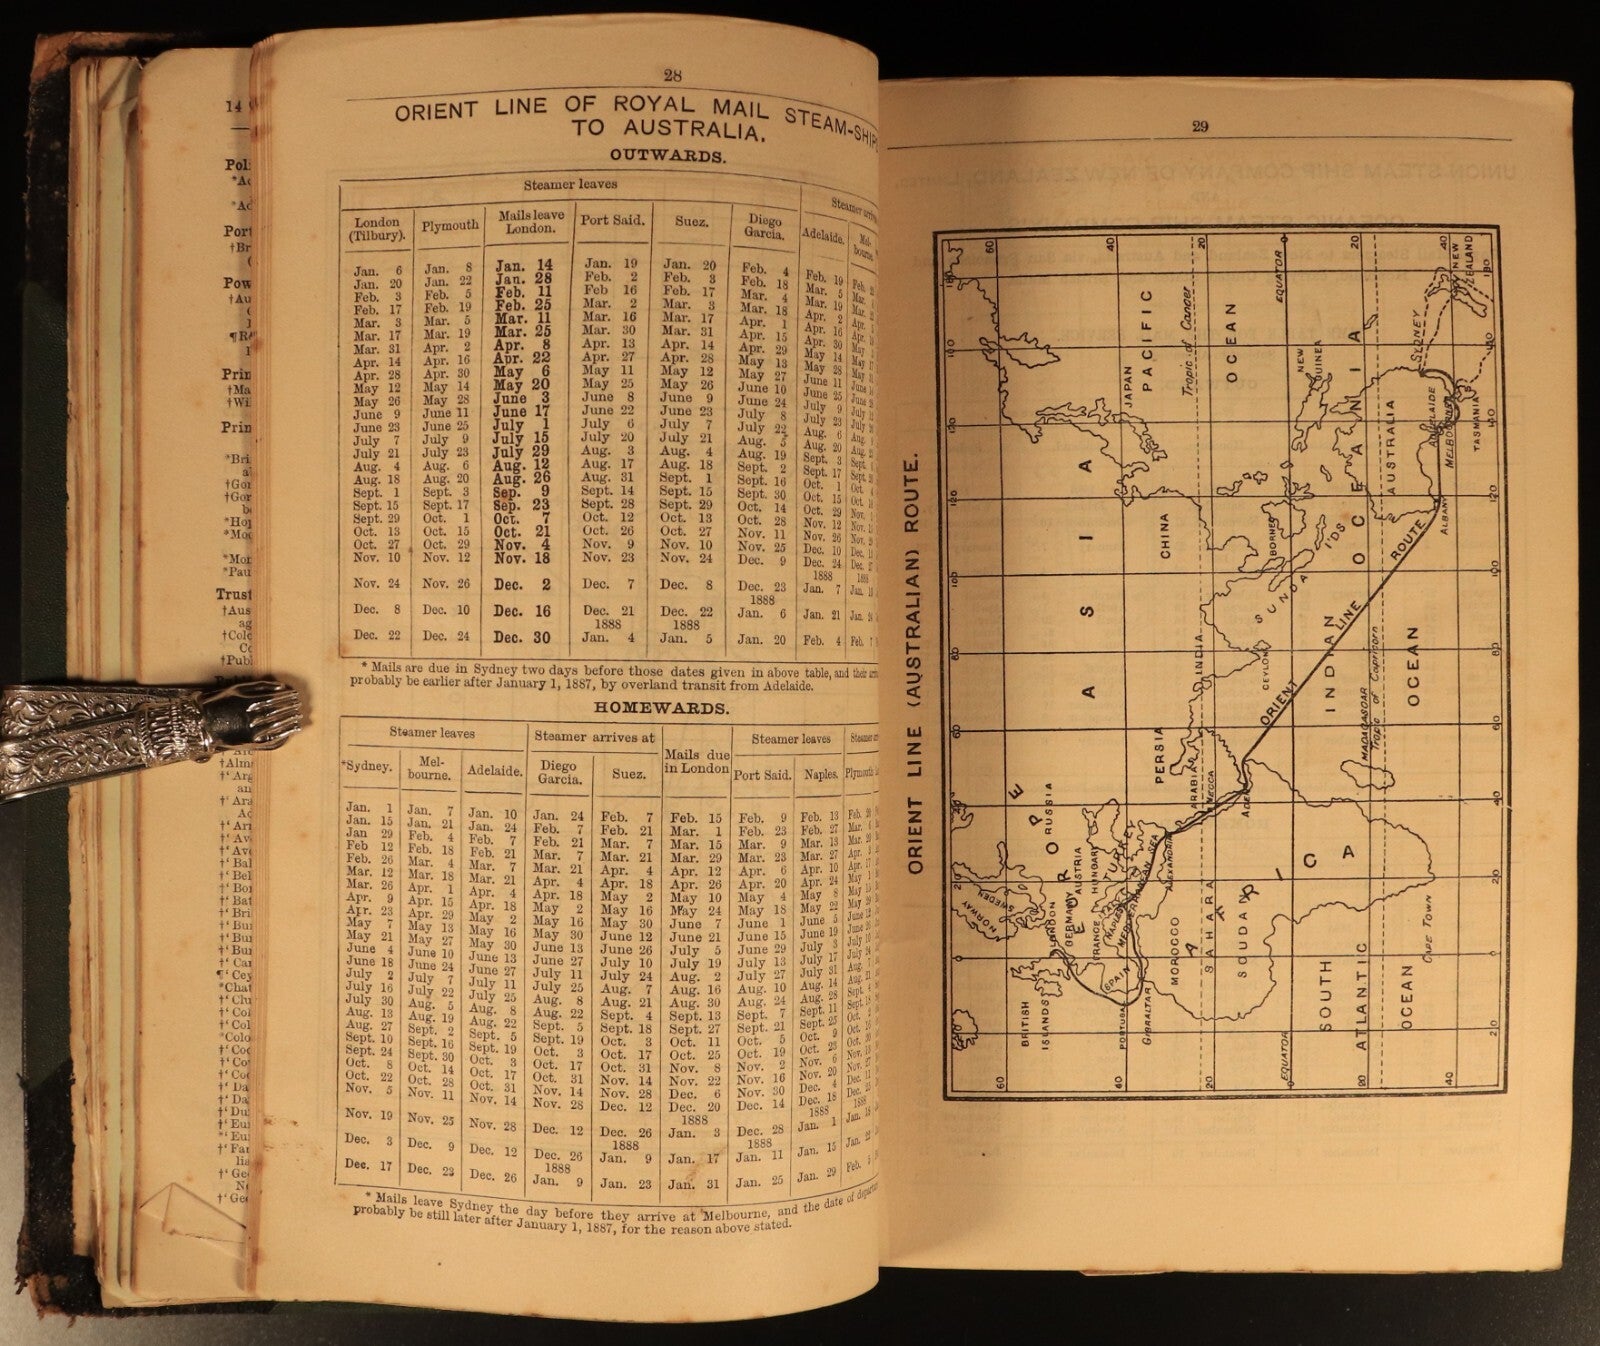 28
ORIENT LINE OF ROYAL MAIL STEAM-SHIPS
TO AUSTRALIA.
OUTWARDS.
Steamer leaves
London (Tilbury). Plymouth Mails leave London. Port Said. Suez. Diego Garcia. Adelaide.
Jan. 6 Jan. 8 Jan. 14 Jan. 19 Jan. 20 Feb. 4 Feb. 19
Jan. 20 Jan. 22 Jan. 28 Feb. 2 Feb. 3 Feb. 18 Mar. 5
Feb. 3 Feb. 5 Feb. 11 Feb 16 Feb. 17 Mar. 4 Mar. 19
Feb. 17 Feb. 19 Feb. 25 Mar. 2 Mar. 3 Mar. 18 Apr. 2
Mar. 3 Mar. 5 Mar. 11 Mar. 16 Mar. 17 Apr. 1 Apr. 16
Mar. 17 Mar. 19 Mar. 25 Mar. 30 Mar. 31 Apr. 15 Apr. 30
Mar. 31 Apr. 2 Apr. 8 Apr. 13 Apr. 14 Apr. 29 May 14
Apr. 14 Apr. 16 Apr. 22 Apr. 27 Apr. 28 May 13 May 28
Apr. 28 Apr. 30 May 6 May 11 May 12 May 27 June 11
May 12 May 14 May 20 May 25 May 26 June 10 June 25
May 26 May 28 June 3 June 8 June 9 June 24 July 9
June 9 June 11 June 17 June 22 June 23 July 8 July 23
June 23 June 25 July 1 July 6 July 7 July 22 Aug. 6
July 7 July 9 July 15 July 20 July 21 Aug. 5 Aug. 20
July 21 July 23 July 29 Aug. 3 Aug. 4 Aug. 19 Sept. 3
Aug. 4 Aug. 6 Aug. 12 Aug. 17 Aug. 18 Sept. 2 Sept. 17
Aug. 18 Aug. 20 Aug. 26 Aug. 31 Sept. 1 Sept. 16 Oct. 1
Sept. 1 Sept. 3 Sep. 9 Sept. 14 Sept. 15 Sept. 30 Oct. 15
Sept. 15 Sept. 17 Sep. 23 Sept. 28 Sept. 29 Oct. 14 Oct. 29
Sept. 29 Oct. 1 Oct. 7 Oct. 12 Oct. 13 Oct. 28 Nov. 12
Oct. 13 Oct. 15 Oct. 21 Oct. 26 Oct. 27 Nov. 11 Nov. 26
Oct. 27 Oct. 29 Nov. 4 Nov. 9 Nov. 10 Nov. 25 Dec. 10
Nov. 10 Nov. 12 Nov. 18 Nov. 23 Nov. 24 Dec. 9 Dec. 24
1888 1888
Nov. 24 Nov. 26 Dec. 2 Dec. 7 Dec. 8 Dec. 23 Jan. 7
1888
Dec. 8 Dec. 10 Dec. 16 Dec. 21 Dec. 22 Jan. 6 Jan. 21
1888 1888
Dec. 22 Dec. 24 Dec. 30 Jan. 4 Jan. 5 Jan. 20 Feb. 4
* Mails are due in Sydney two days before those dates given in above table, and their
probably be earlier after January 1, 1887, by overland transit from Adelaide.
HOMEWARDS.
Steamer leaves Steamer arrives at Mails due in London Steamer leaves
*Sydney. Mel-bourne. Adelaide. Diego Garcia. Suez. Port Said. Naples. Plymouth
Jan. 1 Jan. 7 Jan. 10 Jan. 24 Feb. 7 Feb. 15 Feb. 9 Feb. 13
Jan. 15 Jan. 21 Jan. 24 Feb. 7 Feb. 21 Mar. 1 Feb. 23 Feb. 27
Jan 29 Feb. 4 Feb. 7 Feb. 21 Mar. 7 Mar. 15 Mar. 9 Mar. 13
Feb 12 Feb. 18 Feb. 21 Mar. 7 Mar. 21 Mar. 29 Mar. 23 Mar. 27
Feb. 26 Mar. 4 Mar. 7 Mar. 21 Apr. 4 Apr. 12 Apr. 6 Apr. 10
Mar. 12 Mar. 18 Mar. 21 Apr. 4 Apr. 18 Apr. 26 Apr. 20 Apr. 24
Mar. 26 Apr. 1 Apr. 4 Apr. 18 May 2 May 10 May 4 May 8
Apr. 9 Apr. 15 Apr. 18 May 2 May 16 May 24 May 18 May 22
Apr. 23 Apr. 29 May 2 May 16 May 30 June 7 June 1 June 5
May 7 May 13 May 16 May 30 June 12 June 21 June 15 June 19
May 21 May 27 May 30 June 13 June 26 July 5 June 29 July 3
June 4 June 10 June 13 June 27 July 10 July 19 July 13 July 17
June 18 June 24 June 27 July 11 July 24 Aug. 2 July 27 July 31
July 2 July 7 July 11 July 25 Aug. 7 Aug. 16 Aug. 10 Aug. 14
July 16 July 22 July 25 Aug. 8 Aug. 21 Aug. 30 Aug. 24 Aug. 28
July 30 Aug. 5 Aug. 8 Aug. 22 Sept. 4 Sept. 13 Sept. 7 Sept. 11
Aug. 13 Aug. 19 Aug. 22 Sept. 5 Sept. 18 Sept. 27 Sept. 21 Sept. 25
Aug. 27 Sept. 2 Sept. 5 Sept. 19 Oct. 3 Oct. 11 Oct. 5 Oct. 9
Sept. 10 Sept. 16 Sept. 19 Oct. 3 Oct. 17 Oct. 25 Oct. 19 Oct. 23
Sept. 24 Sept. 30 Oct. 3 Oct. 17 Oct. 31 Nov. 8 Nov. 2 Nov. 6
Oct. 8 Oct. 14 Oct. 17 Oct. 31 Nov. 14 Nov. 22 Nov. 16 Nov. 20
Oct. 22 Oct. 28 Oct. 31 Nov. 14 Nov. 28 Dec. 6 Nov. 30 Dec. 4
Nov. 5 Nov. 11 Nov. 14 Nov. 28 Dec. 12 Dec. 20 Dec. 14 Dec. 18
1888 1888
Nov. 19 Nov. 25 Nov. 28 Dec. 12 Dec. 26 Jan. 3 Dec. 28 Jan. 1
1888 1888
Dec. 3 Dec. 9 Dec. 12 Dec. 26 Jan. 9 Jan. 17 Jan. 11 Jan. 15
1888
Dec. 17 Dec. 23 Dec. 26 Jan. 9 Jan. 23 Jan. 31 Jan. 25 Jan. 29
* Mails leave Sydney the day before they arrive at Melbourne, and the date of departure
probably be still later after January 1, 1887, for the reason above stated.
29
ORIENT LINE (AUSTRALIAN) ROUTE.
NORWAY
SWEDEN
BRITISH ISLANDS
LONDON
EUROPE
RUSSIA
GERMANY
AUSTRIA
HUNGARY
FRANCE
NAPLES
TURKEY
PORTUGAL
SPAIN
GIBRALTAR
MEDITERRANEAN SEA
ALEXANDRIA
MOROCCO
SAHARA
SOUDAN
AFRICA
ARABIA
MECCA
ADEN
PERSIA
ASIA
INDIA
CEYLON
CHINA
JAPAN
PACIFIC
OCEAN
Tropic of Cancer
EQUATOR
EQUATOR
BORNEO
SUNDA I'DS
NEW GUINEA
OCEANIA
AUSTRALIA
SYDNEY
ADELAIDE
MELBOURNE
TASMANIA
NEW ZEALAND
ALBANY
ORIENT LINE ROUTE
INDIAN
OCEAN
MADAGASCAR
Tropic of Capricorn
CAPE TOWN
SOUTH
ATLANTIC
OCEAN